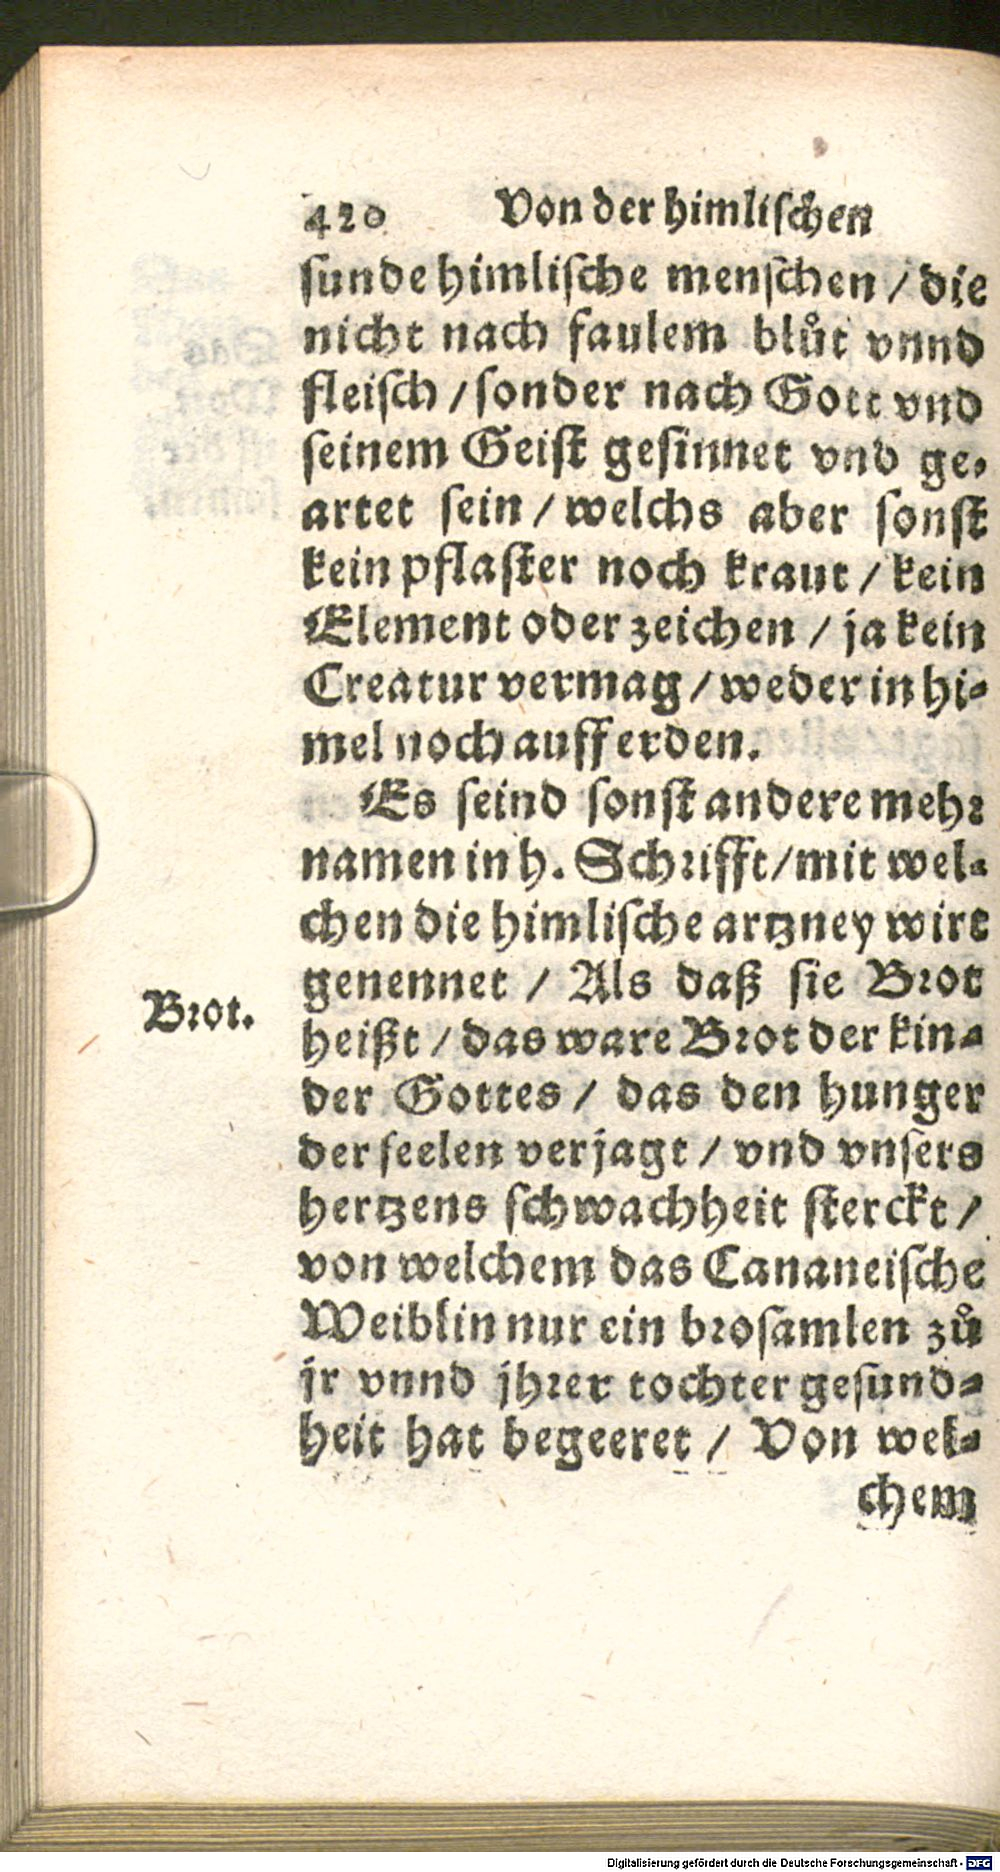 420 Von der himlischen
sunde himlische menschen / die
nicht nach faulem blůt vnnd
fleisch / sonder nach Gott vnd
seinem Geist gesinnet vnd ge-
artet sein / welchs aber sonst
kein pflaster noch kraut / kein
Element oder zeichen / ja kein
Creatur vermag / weder in hi-
mel noch auff erden.
Es seind sonst andere mehr
namen in h. Schrifft / mit wel-
chen die himlische artzney wirt
genennet / Als daß sie Brot
Brot.
heißt / das ware Brot der kin-
der Gottes / das den hunger
der seelen verjagt / vnd vnsers
hertzens schwachheit sterckt /
von welchem das Cananeische
Weiblin nur ein brosamlen zů
jr vnnd jhrer tochter gesund-
heit hat begeeret / Von wel-
chem
Digitalisierung gefördert durch die Deutsche Forschungsgemeinschaft - DFG